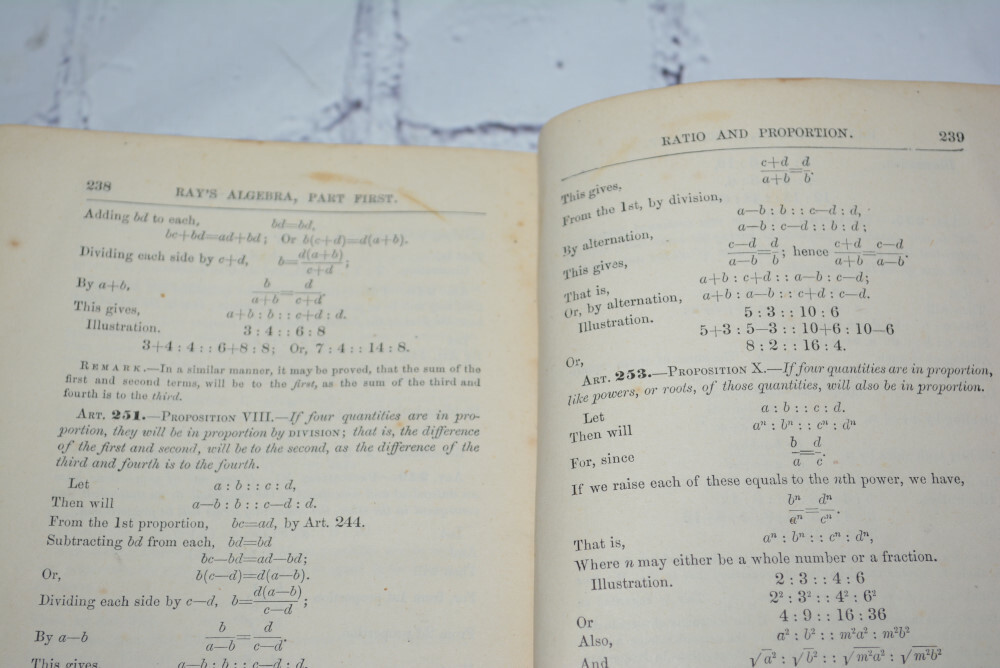 238
RAY'S ALGEBRA, PART FIRST.
Adding bd to each, bd=bd,
bc+bd=ad+bd; Or b(c+d)=d(a+b).
Dividing each side by c+d, b=d(a+b)/c+d;
By a+b, b/a+b=d/c+d.
This gives, a+b : b : : c+d : d.
Illustration. 3 : 4 : : 6 : 8
3+4 : 4 : : 6+8 : 8; Or, 7 : 4 : : 14 : 8.
REMARK.—In a similar manner, it may be proved, that the sum of the
first and second terms, will be to the first, as the sum of the third and
fourth is to the third.
ART. 251.—PROPOSITION VIII.—If four quantities are in pro-
portion, they will be in proportion by DIVISION; that is, the difference
of the first and second, will be to the second, as the difference of the
third and fourth is to the fourth.
Let a : b : : c : d,
Then will a—b : b : : c—d : d.
From the 1st proportion, bc=ad, by Art. 244.
Subtracting bd from each, bd=bd
bc—bd=ad—bd;
Or, b(c—d)=d(a—b).
Dividing each side by c—d, b=d(a—b)/c—d;
By a—b b/a—b=d/c—d.
This gives, a—b : b : : c—d : d.
RATIO AND PROPORTION. 239
This gives, c+d/a+b=d/b.
From the 1st, by division, a—b : b : : c—d : d,
By alternation, a—b : c—d : : b : d;
This gives, c—d/a—b=d/b; hence c+d/a+b=c—d/a—b.
That is, a+b : c+d : : a—b : c—d;
Or, by alternation, a+b : a—b : : c+d : c—d.
Illustration. 5 : 3 : : 10 : 6
5+3 : 5—3 : : 10+6 : 10—6
Or, 8 : 2 : : 16 : 4.
ART. 253.—PROPOSITION X.—If four quantities are in proportion,
like powers, or roots, of those quantities, will also be in proportion.
Let a : b : : c : d.
Then will aⁿ : bⁿ : : cⁿ : dⁿ
For, since b/a=d/c.
If we raise each of these equals to the nth power, we have,
bⁿ/aⁿ=dⁿ/cⁿ.
That is, aⁿ : bⁿ : : cⁿ : dⁿ,
Where n may either be a whole number or a fraction.
Illustration. 2 : 3 : : 4 : 6
2² : 3² : : 4² : 6²
Or 4 : 9 : : 16 : 36
Also, a² : b² : : m²a² : m²b²
And √a² : √b² : : √m²a² : √m²b²